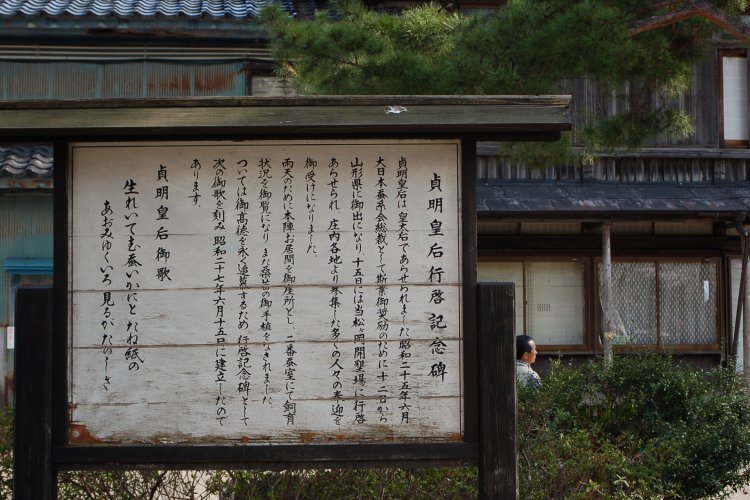 貞明皇后行啓記念碑
貞明皇后は皇太后であらせられました昭和二十五年六月
大日本蚕糸会総裁として斯業御奨励のために十二日から
山形県に御出になり十五日には当松ヶ岡開墾場に行啓
あらせられ 庄内各地より参集した多くの人々の奉迎を
御受けになりました
雨天のために本陣お居間を御座所とし、二番蚕室にて飼育
状況を御覧になり、また桑苗の御手植もなされました。
ついては御高徳を永く追慕するため 行啓記念碑として
次の御歌を刻み 昭和二十七年六月十五日に建立したので
あります。
貞明皇后御歌
生れいでし蚕いかにとたね紙の
あおみゆくいろ見るがたのしさ